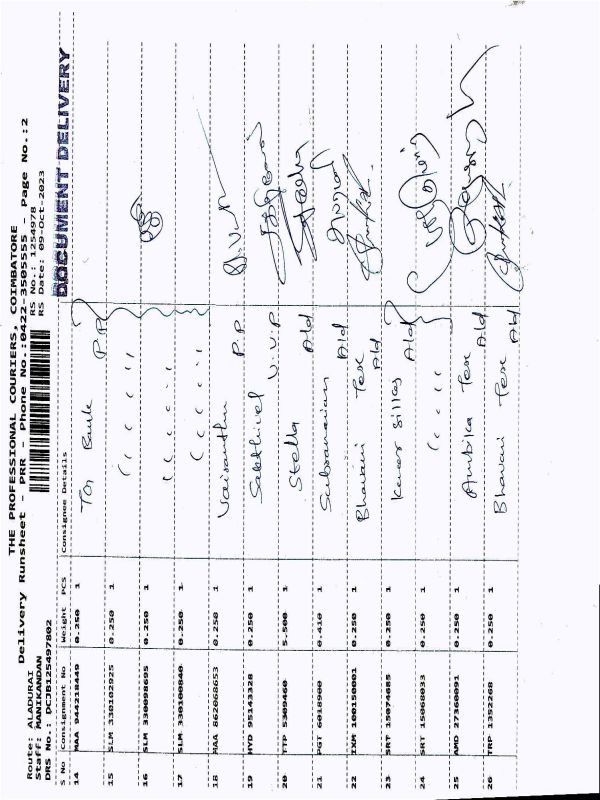 THE PROFESSIONAL COURIERS, COIMBATORE
Delivery Runsheet - PRR - Phone No.:0422-3505555 - Page No.:2
Route: ALADURAI
Staff: MANIKANDAN
DRS No.: DCJB125497802
RS No.: 1254978
RS Date: 09-Oct-2023
DOCUMENT DELIVERY
S No Consignment No Weight PCS Consignee Details
14 MAA 944218449 0.250 1 Bank P.P
15 SLM 330102925 0.250 1
16 SLM 330098695 0.250 1
17 SLM 330100840 0.250 1
18 MAA 862068653 0.250 1 P.P
19 HYD 95143328 0.250 1 Sakthivel V.V.P
20 TTP 5309460 5.500 1 Stella Ald
21 PGT 6018900 0.410 1 Subramanian Ald
22 IXM 100150001 0.250 1 Bhavani Tex Ald
23 SRT 15074085 0.250 1 Silks Ald
24 SRT 15068033 0.250 1
25 AMD 27360091 0.250 1 Ambika Tex Ald
26 TRP 1352208 0.250 1 Bhavani Tex Ald